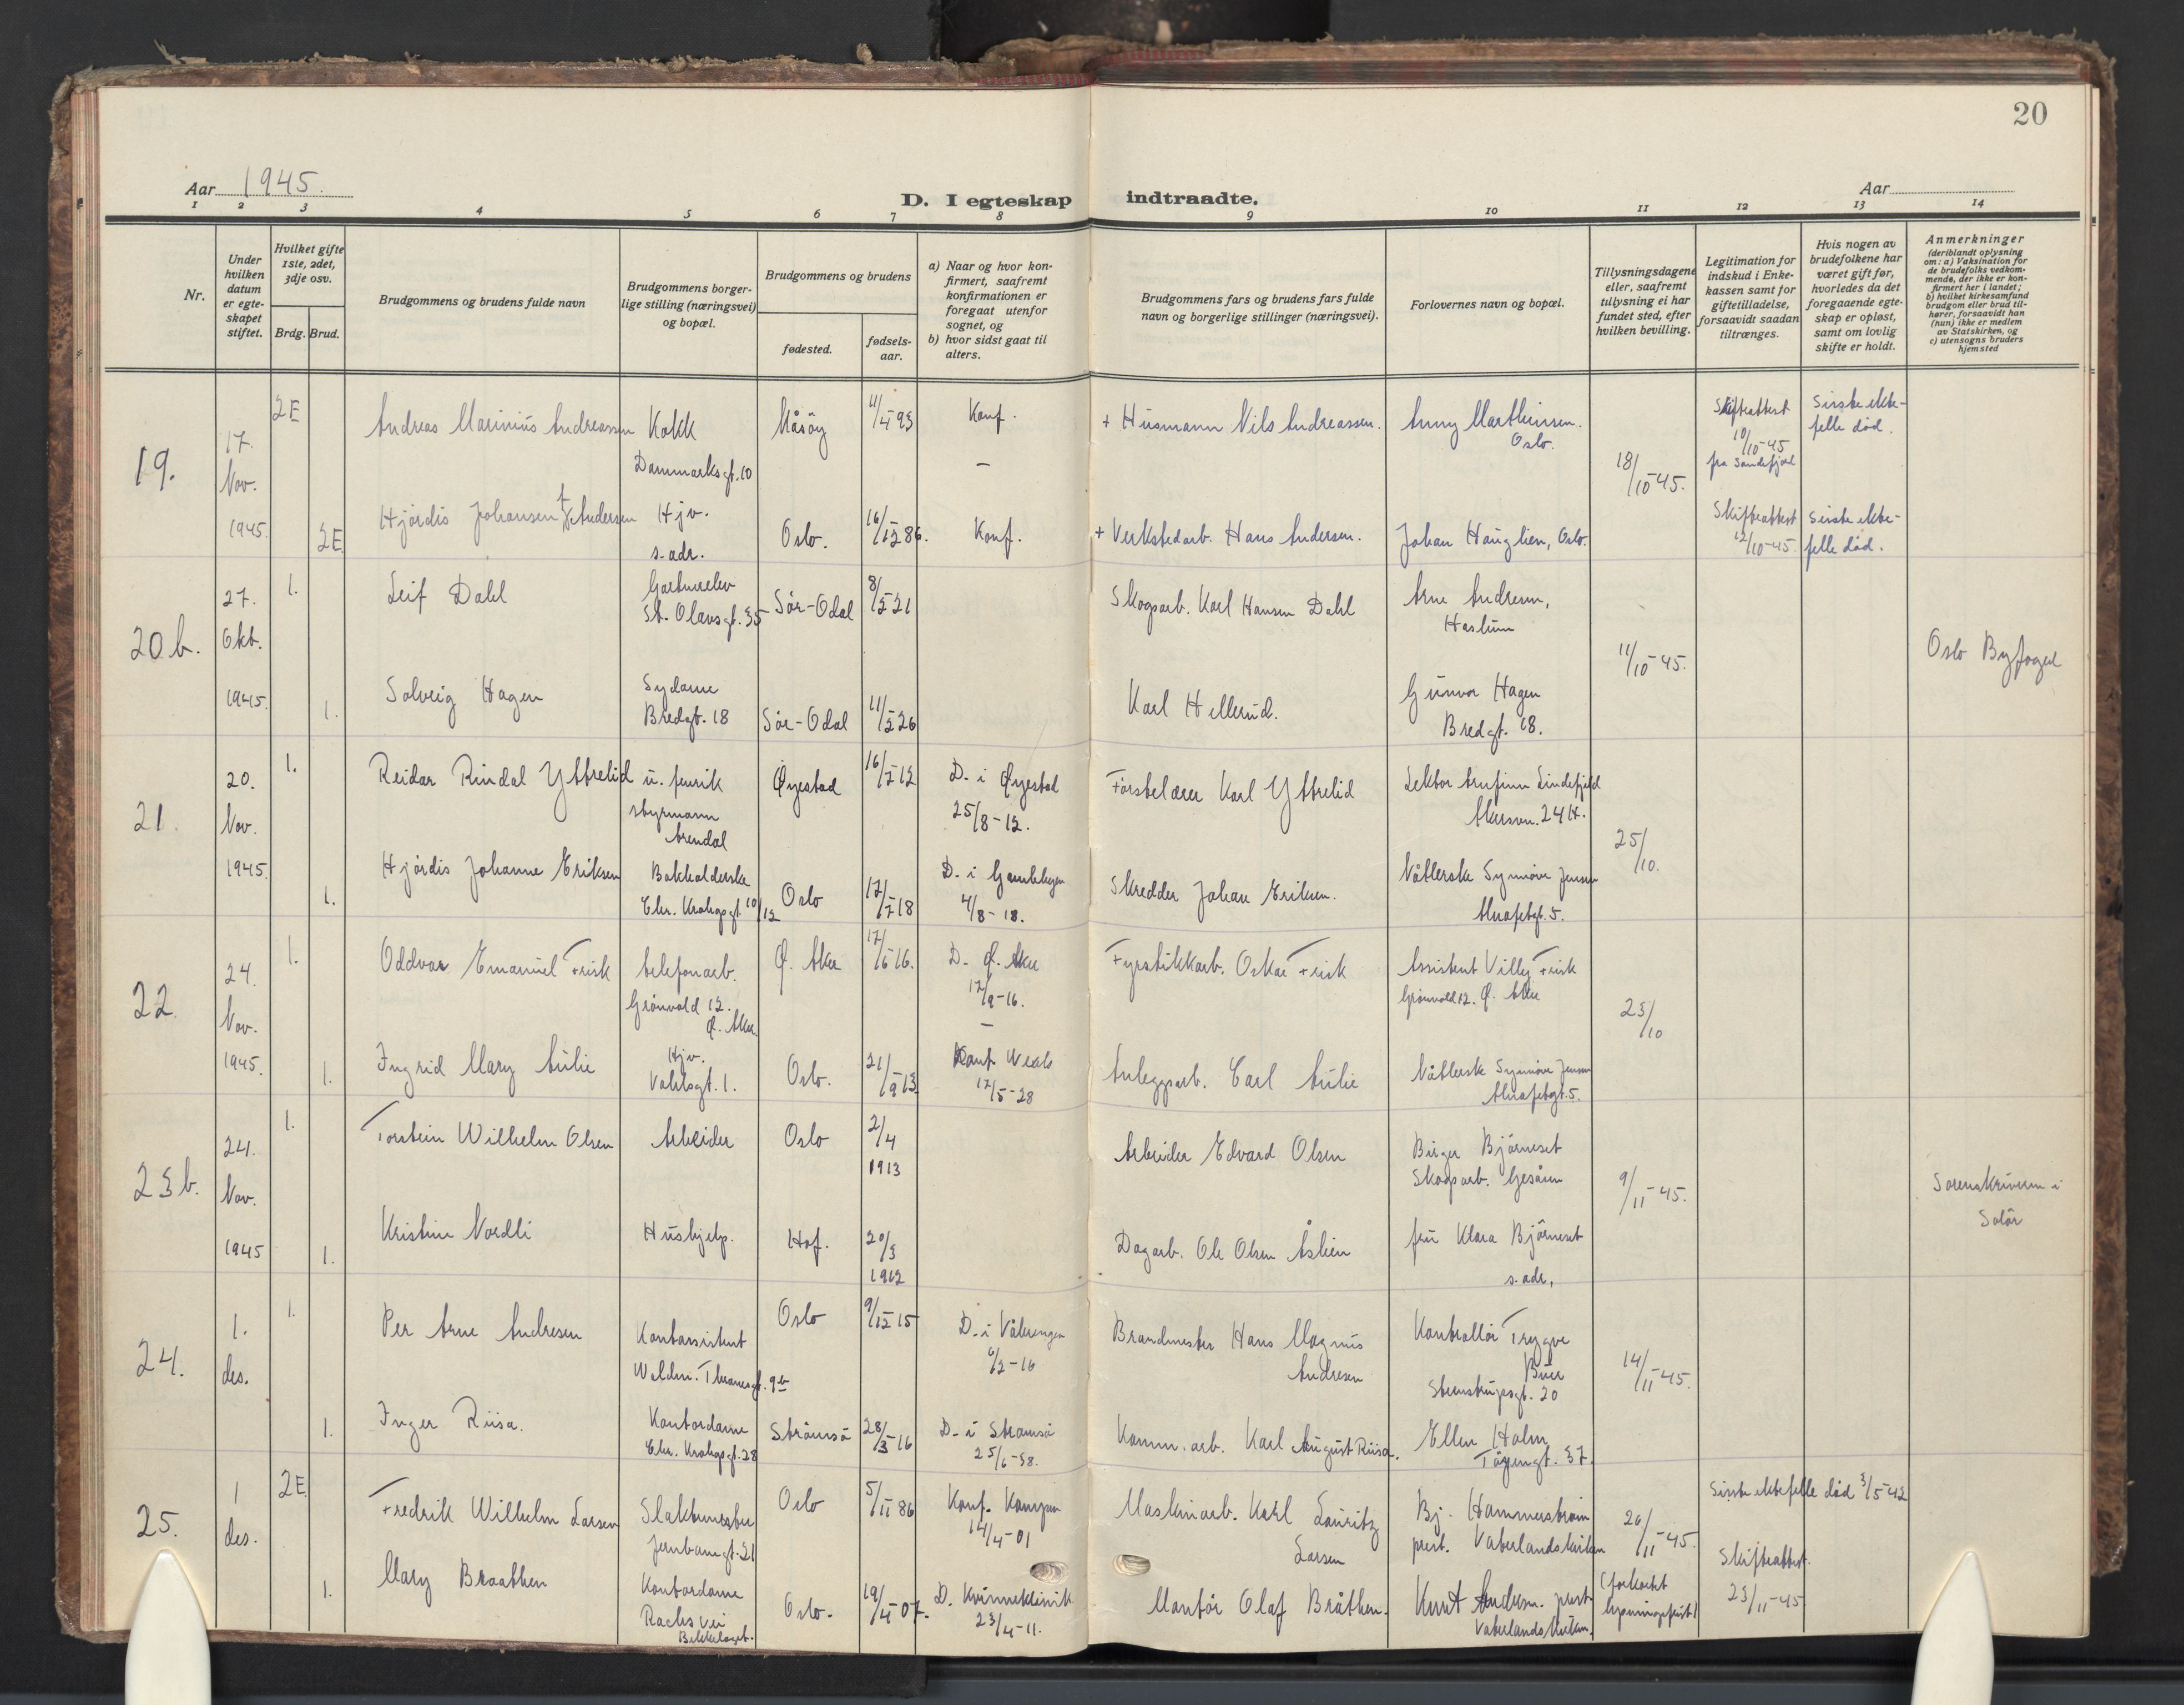 20
Aar 1945.
D. I egteskap indtraadte.
Aar
1 2 3 4 5 6 7 8 9 10 11 12 13 14
Nr.
Under hvilken datum er egte-skapet stiftet.
Hvilket gifte 1ste, 2det, 3dje osv.
Brdg. Brud.
Brudgommens og brudens fulde navn
Brudgommens borger-
lige stilling (næringsvei)
og bopæl.
Brudgommens og brudens
fødested.
fødsels-
aar.
a) Naar og hvor kon-
firmert, saafremt
konfirmationen er
foregaat utenfor
sognet, og
b) hvor sidst gaat til
alters.
Brudgommens fars og brudens fars fulde
navn og borgerlige stillinger (næringsvei).
Forlovernes navn og bopæl.
Tillysningsdagene
eller, saafremt
tillysning ei har
fundet sted, efter
hvilken bevilling.
Legitimation for
indskud i Enke-
kassen samt for
giftetilladelse,
forsaavidt saadan
tiltrænges.
Hvis nogen av
brudefolkene har
været gift før,
hvorledes da det
foregaaende egte-
skap er opløst,
samt om lovlig
skifte er holdt.
Anmerkninger
(deriblandt oplysning
om: a) Vaksination for
de brudefolks vedkom-
mende, der ikke er kon-
firmert her i landet;
b) hvilket kirkesamfund
brudgom eller brud til-
hører, forsaavidt han
(hun) ikke er medlem
av Statskirken, og
c) utensogns bruders
hjemsted
19.
17. Nov. 1945.
2E
Andreas Marinius Andreassen
Kokk
Danmarksgt. 10
Måsøy
11/4-93
Konf.
–
+ Husmann Nils Andreassen.
Anny Marthinsen.
Oslo.
18/10-45.
Skifteattest
10/10-45
fra Sandefjord
Siste ekte-
felle død.
2E
Hjördis Johansen f. Andersen
Hjv.
s. adr.
Oslo.
16/12 86.
Konf.
+ Verkstedarb. Hans Andersen.
Johan Hauglien, Oslo.
Skifteattest
12/10-45.
Siste ekte-
felle död.
20b.
27. Okt. 1945.
1.
Leif Dahl
Gartnerelev
St. Olavsgt. 35
Sör-Odal
8/2 21
Skogsarb. Karl Hansen Dahl
Arne Andresen,
Haslum
11/10-45.
Oslo Byfoged
1.
Solveig Hagen
Sydame
Bredgt. 18
Sör-Odal
11/2 26
Karl Hellerud.
Gunvor Hagen
Bredgt. 18.
21.
20. Nov. 1945.
1.
Reidar Rindal Yttrelid
u. fenrik
styrmann
Arendal
Øyestad
16/7-12
D. i Øyestad
25/8-12.
Förstelærer Karl Yttrelid
Lektor Arnfinn Lindefjeld
Akersvn. 24 H.
25/10.
1.
Hjördis Johanne Eriksen
Bokholderske
Chr. Krohgsgt. 10/12
Oslo
17/7-18
D. i Gamlebyen
4/8-18.
Skredder Johan Eriksen.
Nåtlerske Synnöve Jensen
Alnafetgt. 5.
22.
24. Nov. 1945.
1.
Oddvar Emanuel Frisk
telefonarb.
Grönvold 12.
Ø. Aker.
Ø. Aker
17/6-16.
D. Ø. Aker
17/9-16.
–
Fyrstikkarb. Oskar Frisk
Assistent Villy Frisk
Grönvold 12. Ø. Aker
23/10
1.
Ingrid Mary Aulie
Hjv.
Vahlsgt. 1.
Oslo.
21/9-13
Konf.
17/5-28
Anleggsarb. Carl Aulie
Nåtlerske Synnöve Jensen
Alnafetgt. 5.
23b.
24. Nov. 1945
1.
Torstein Wilhelm Olsen
Arbeider
Oslo
2/4
1913
Arbeider Edvard Olsen
Birger Björneset
Skogsarb. Gesåsen
9/11-45.
Sorenskriveren i
Solör
1.
Kristine Nordli
Hushjelp.
Hof.
20/3
1912
Dagarb. Ole Olsen Åslien
fru Klara Björneset
s. adr.
24.
1. des.
1.
Per Arne Andresen
Kontorassistent
Waldm. Thranesgt. 9b
Oslo
9/12 15
D. i Vålerengen
6/2-16
Brandmester Hans Magnus
Andresen
Kontrollör Trygve
Buer
Steenstrupsgt. 20
14/11-45.
1.
Inger Riisa.
Kontordame
Chr. Krohgsgt. 28
Strömsö
28/3-16
D. i Strömsö
25/6-38.
Komm. arb. Karl August Riisa.
Ellen Holm
Töyengt. 37.
25.
1 des.
2E.
Fredrik Wilhelm Larsen
Slaktermester
Jernbanegt. 21
Oslo
5/11 86
Konf. Kampen
14/4-01
Maskinarb. Karl Lauritz
Larsen
Bj. Hammerström
prest. Vaterlandskirken
26/11-45.
(forkortet
lysningsfrist)
Siste ektefelle död 3/5-42
Skifteattest.
23/11-45
1.
Mary Braathen
Kontordame
Raches vei
Bekkelaget.
Oslo.
19/4-07.
D. Kvinneklinik
23/4-11.
Montör Olaf Bråthen.
Kurt Andersen. prest
Vaterlandskirken.